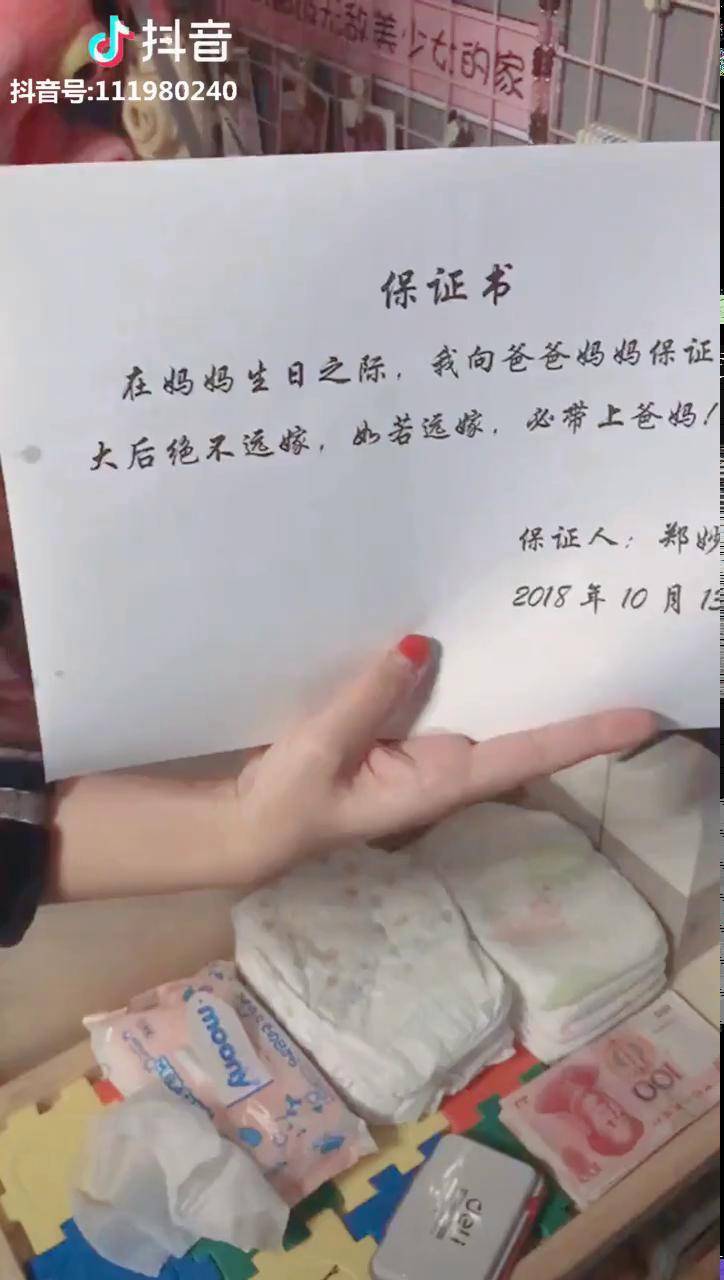 抖音
抖音号:111980240
无敌美少女的家
保证书
在妈妈生日之际，我向爸爸妈妈保证
大后绝不远嫁，如若远嫁，必带上爸妈！
保证人：郑妙
2018年10月13
moony
100
deli